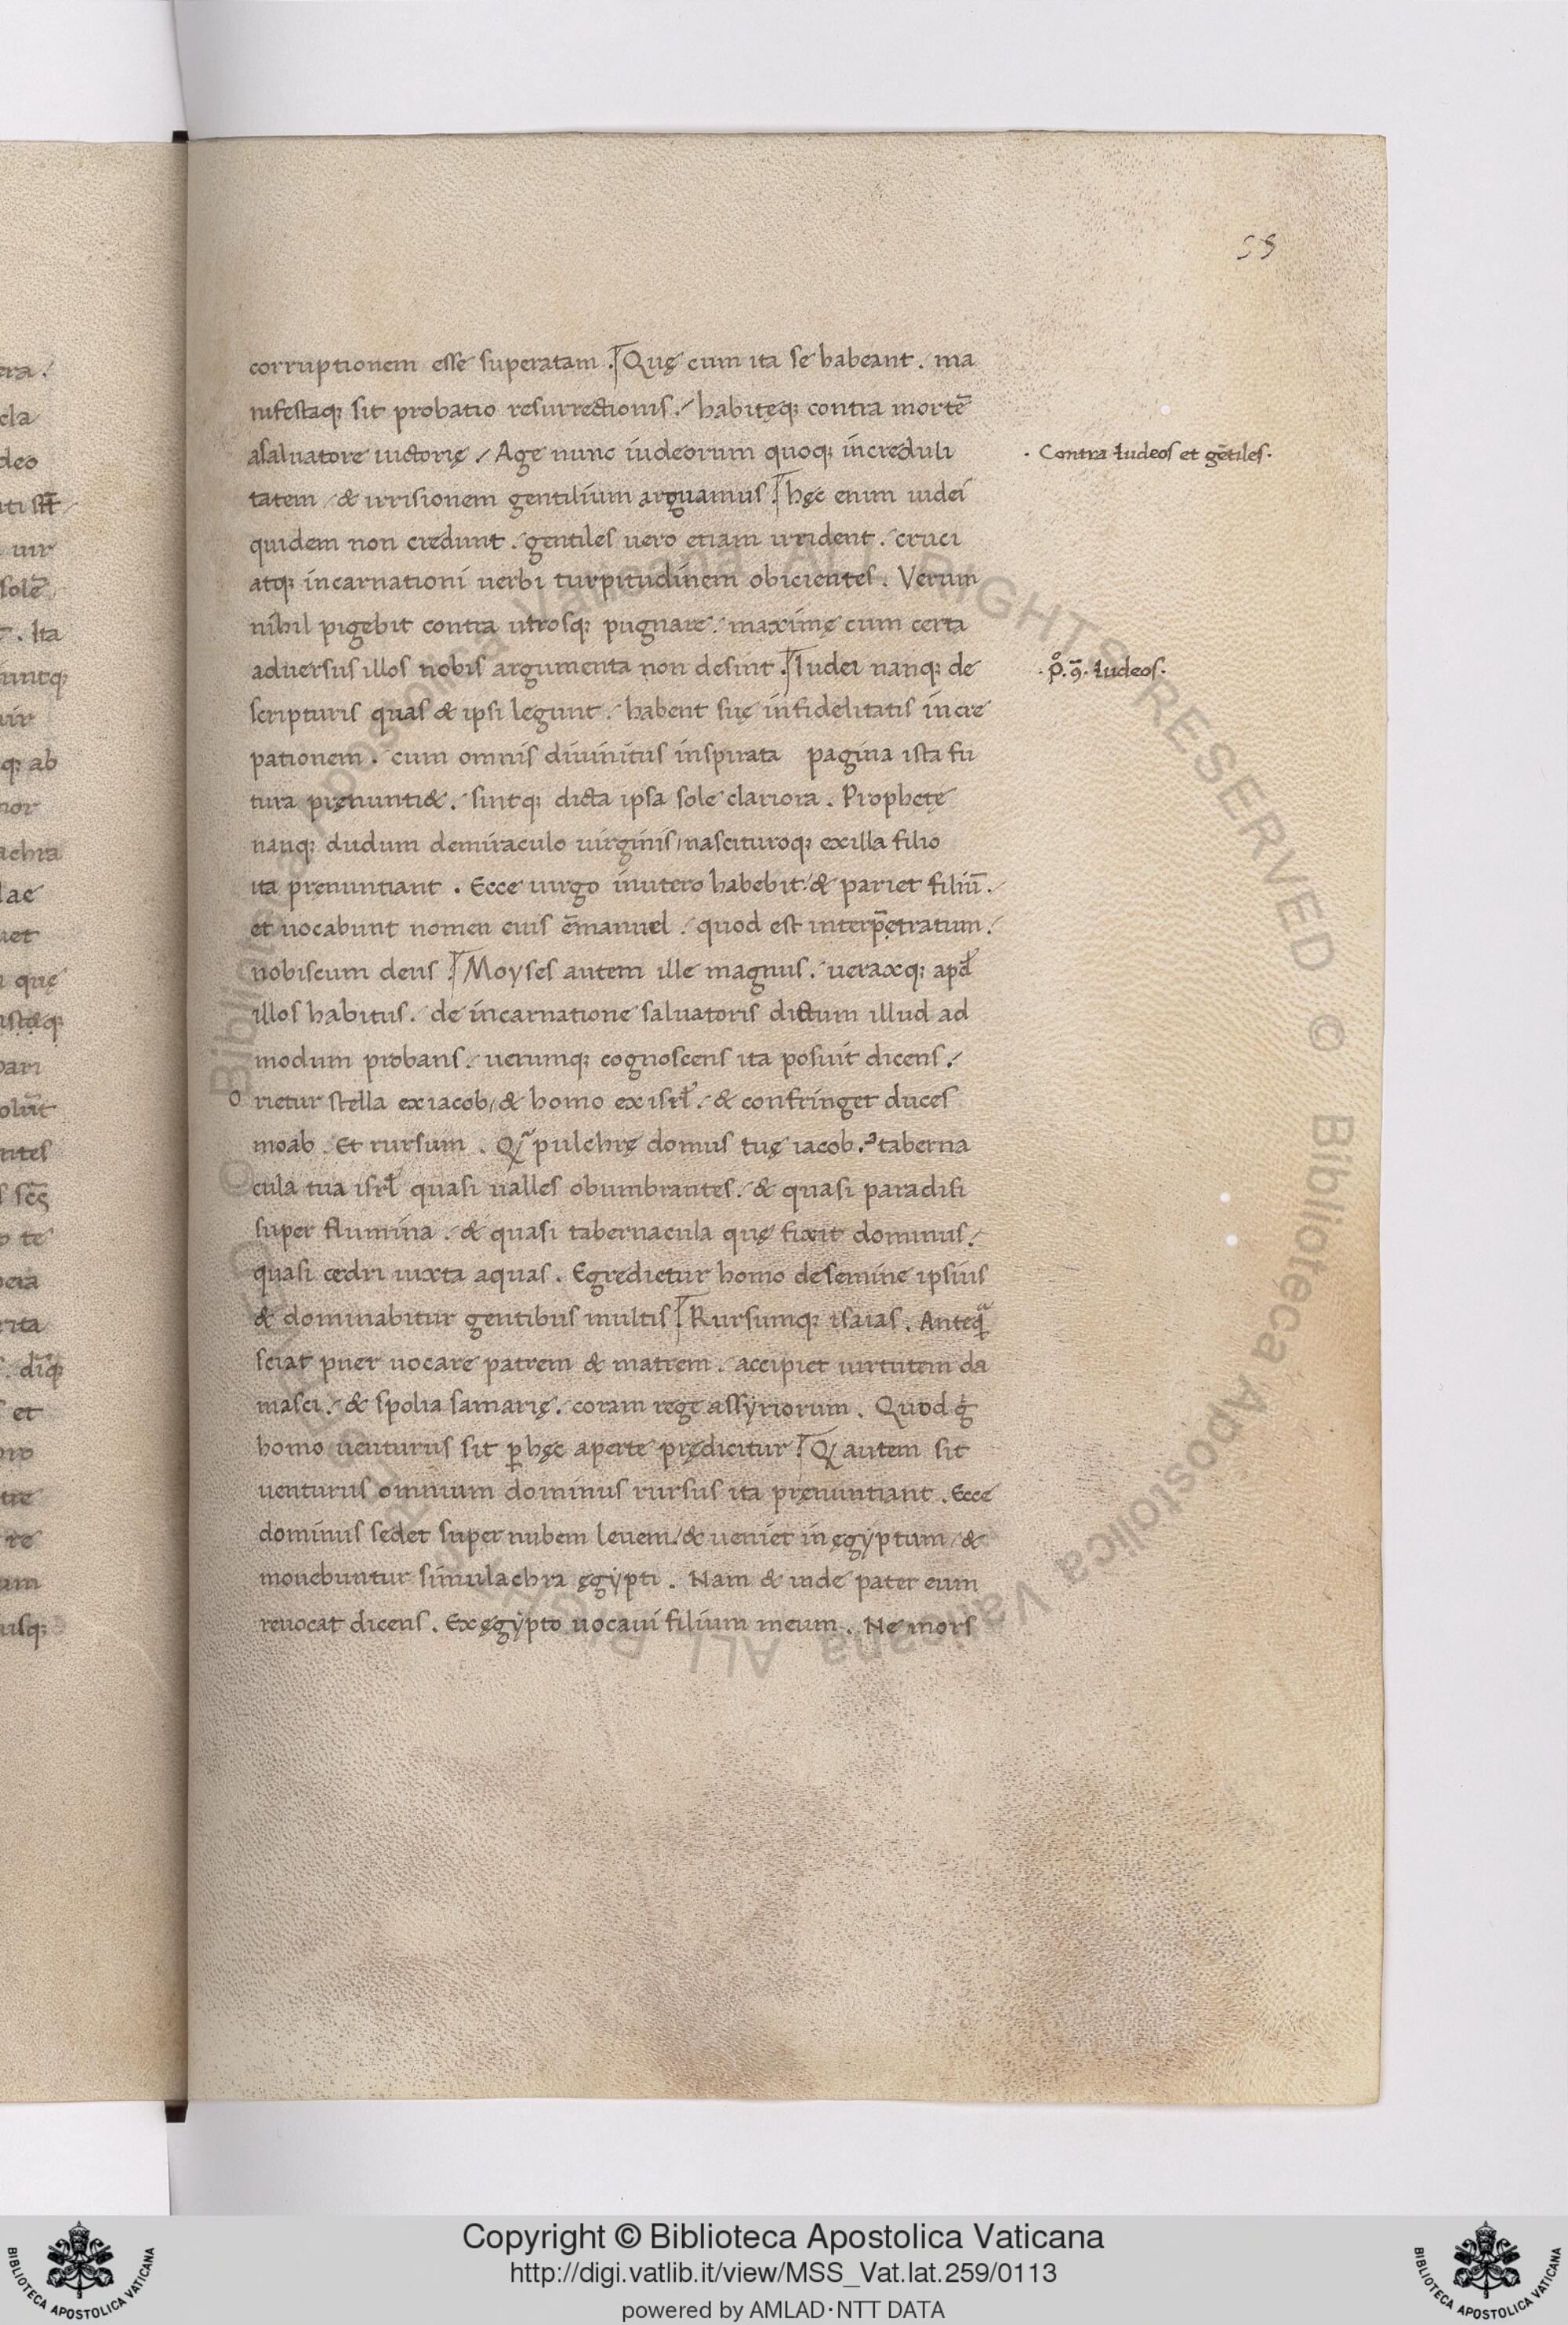 55
corruptionem esse superatam. Quę cum ita se habeant. ma
nifestaq; sit probatio resurrectionis. habitęq; contra mortē
asaluatore uictorię. Age nunc iudeorum quoq; increduli
· Contra Iudeos et gētiles·
tatem & irrisionem gentilium arguamus. hęc enim iudei
quidem non credunt. gentiles uero etiam irrident. cruci
atq; incarnationi uerbi turpitudinem obicientes. Verum
nihil pigebit contra utrosq; pugnare. maximę cum certa
aduersus illos nobis argumenta non desint. Iudei nanq; de
· p̊. ꝯ̄. Iudeos·
scripturis quas & ipsi legunt. habent suę infidelitatis incre
pationem. cum omnis diuinitus inspirata pagina ista fu
tura pręnunti&. sintq; dicta ipsa sole clariora. Prophetę
nanq; dudum demiraculo uirginis, nascituroq; exilla filio
ita pręnuntiant. Ecce uirgo inutero habebit & pariet filiū.
et uocabunt nomen eius ēmanuel. quod est interp̄etratum.
nobiscum deus. Moyses autem ille magnus. ueraxq; apđ
illos habitus. de incarnatione saluatoris dictum illud ad
modum probans. uerumq; cognoscens ita posuit dicens.
O rietur stella ex iacob, & homo ex isrł. & confringet duces
moab. Et rursum. Qᷓ pulchrę domus tuę iacob. taberna
cula tua isrł quasi ualles obumbrantes. & quasi paradisi
super flumina. & quasi tabernacula quę fixit dominus.
quasi cedri iuxta aquas. Egredietur homo desemine ipsius
& dominabitur gentibus multis. Rursumq; isaias. Anteqᷓ
sciat puer uocare patrem & matrem. accipiet uirtutem da
masci. & spolia samarię. coram rege assyriorum. Quod g̊
homo uenturus sit ꝑ hęc aperte prędicitur. Q autem sit
uenturus omnium dominus rursus ita pręnuntiant. Ecce
dominus sedet super nubem leuem. & ueniet in ęgyptum &
mouebuntur simulachra ęgypti. Nam & inde pater eum
reuocat dicens. Ex ęgypto uocaui filium meum. Ne mors
Copyright © Biblioteca Apostolica Vaticana
http://digi.vatlib.it/view/MSS_Vat.lat.259/0113
powered by AMLAD·NTT DATA